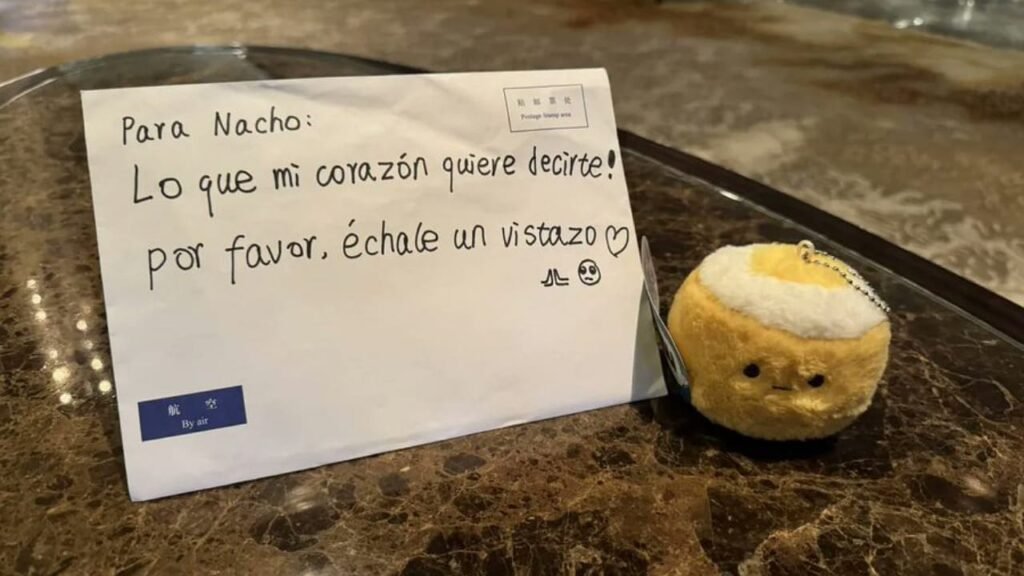 Para Nacho:
贴 邮 票 处
Postage Stamp area
Lo que mi corazón quiere decirte!
por favor, échale un vistazo♡
🥺
航 空
By air